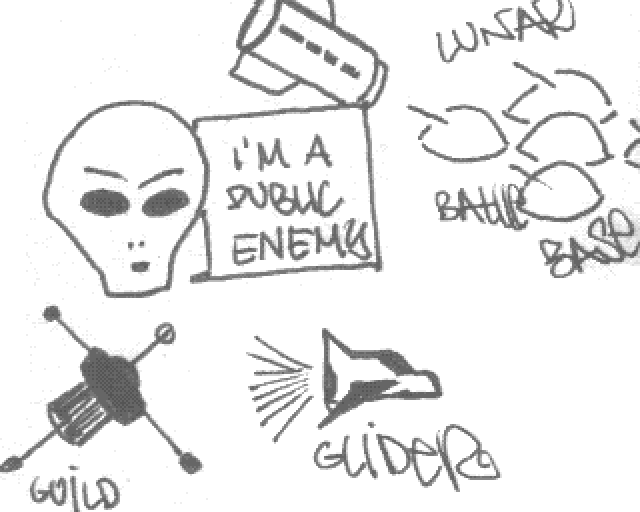 LUNAR
I'M A
PUBLIC
ENEMY
BATTLE
BASE
GUILD
GLIDER